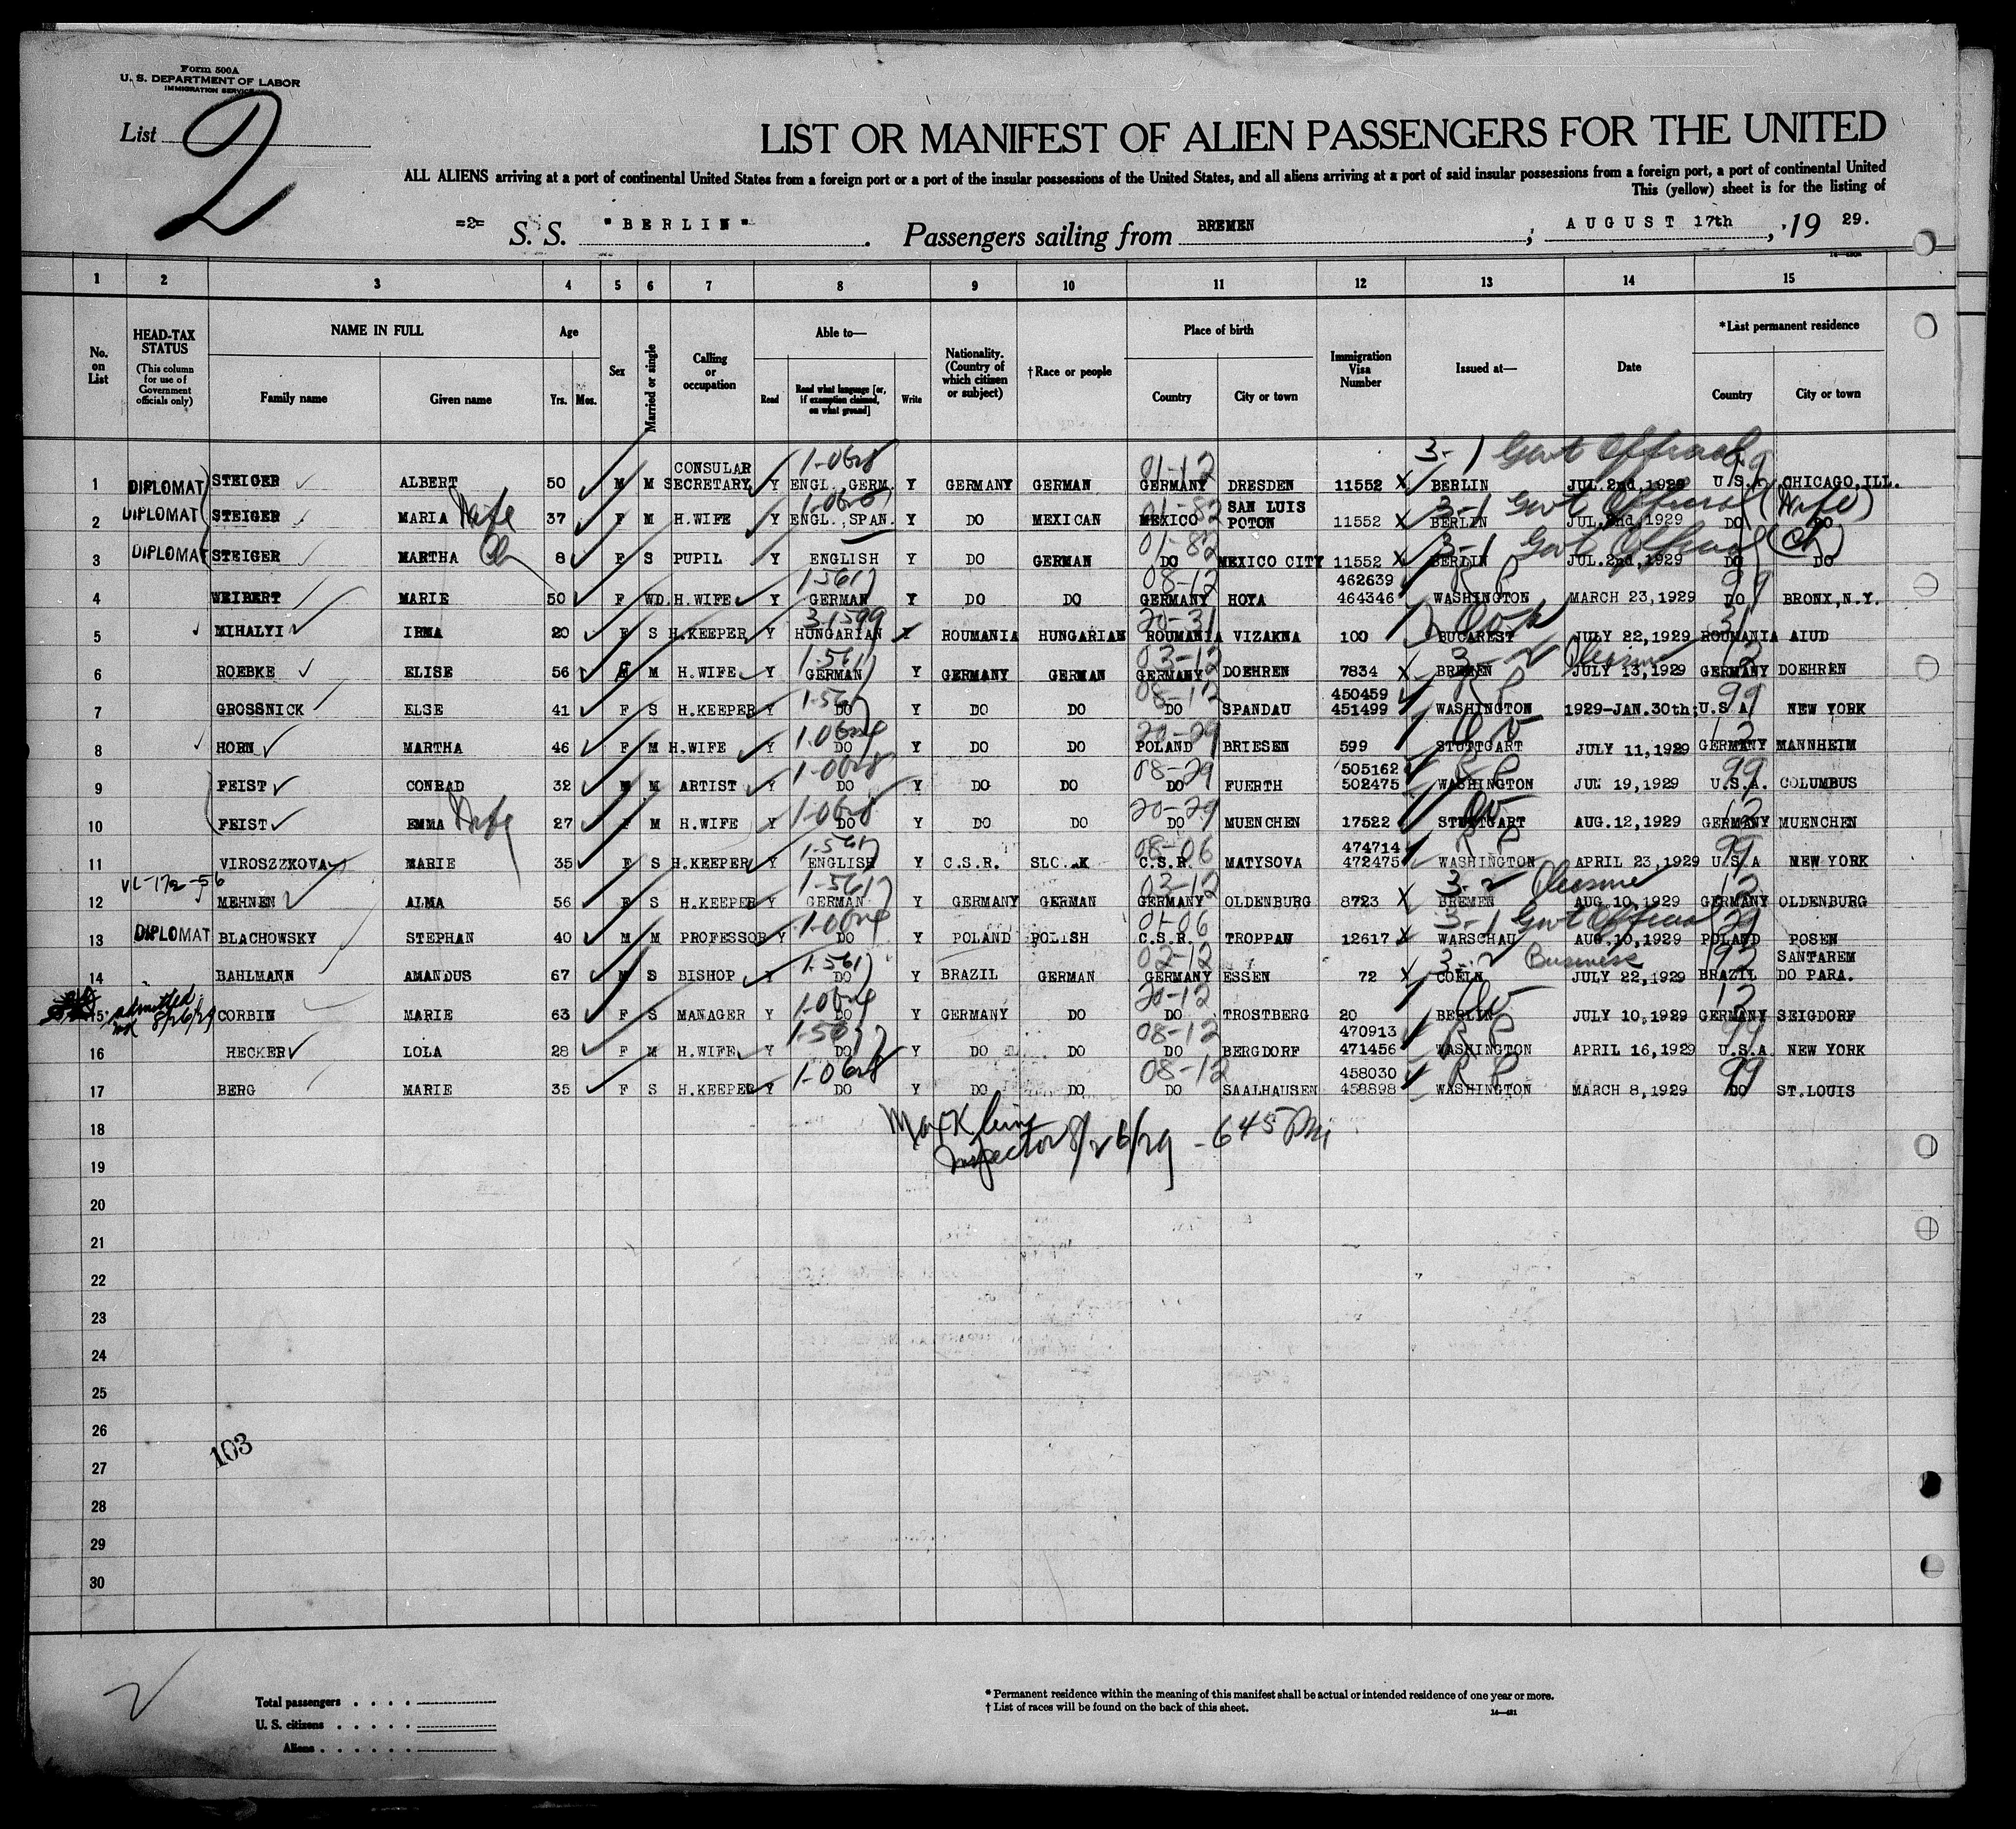 Form 500A
U. S. DEPARTMENT OF LABOR
IMMIGRATION SERVICE
List 2
LIST OR MANIFEST OF ALIEN PASSENGERS FOR THE UNITED
ALL ALIENS arriving at a port of continental United States from a foreign port or a port of the insular possessions of the United States, and all aliens arriving at a port of said insular possessions from a foreign port, a port of continental United
This (yellow) sheet is for the listing of
=2= S. S. "BERLIN". Passengers sailing from BREMEN; AUGUST 17th, 19 29.
1 2 3 4 5 6 7 8 9 10 11 12 13 14 15
No. on List HEAD-TAX STATUS (This column for use of Government officials only) NAME IN FULL Family name Given name Age Yrs. Mos. Sex Married or single Calling or occupation Able to— Read Read what language [or, if exemption claimed, on what ground] Write Nationality. (Country of which citizen or subject) †Race or people Place of birth Country City or town Immigration Visa Number Issued at— Date *Last permanent residence Country City or town
1 DIPLOMAT STEIGER ALBERT 50 M M CONSULAR SECRETARY Y ENGL. GERM. Y GERMANY GERMAN 01-12 GERMANY DRESDEN 11552 X BERLIN 3-1 Govt Official JUL.2nd,1929 U.S.A. CHICAGO,ILL.
2 DIPLOMAT STEIGER MARIA Wife 37 F M H.WIFE Y ENGL. SPAN. Y DO MEXICAN 01-82 MEXICO SAN LUIS POTON 11552 X BERLIN 3-1 Govt Official (Wife) JUL.2nd,1929 DO DO
3 DIPLOMAT STEIGER MARTHA Ch 8 F S PUPIL Y ENGLISH Y DO GERMAN 01-82 DO MEXICO CITY 11552 X BERLIN 3-1 Govt Official (Ch) JUL.2nd,1929 DO DO
4 WEIBERT MARIE 50 F WD. H.WIFE Y 1-561 GERMAN Y DO DO 08-12 GERMANY HOYA 462639 464346 WASHINGTON R P MARCH 23,1929 99 DO BRONX,N.Y.
5 MIHALYI IRMA 20 F S H.KEEPER Y 3-1599 HUNGARIAN Y ROUMANIA HUNGARIAN 20-31 ROUMANIA VIZAKNA 100 BUCAREST JULY 22,1929 31 ROUMANIA AIUD
6 ROEBKE ELISE 56 F M H.WIFE Y 1-561 GERMAN Y GERMANY GERMAN 03-12 GERMANY DOEHREN 7834 X BREMEN 3-2 Pleasure JULY 13,1929 12 GERMANY DOEHREN
7 GROSSNICK ELSE 41 F S H.KEEPER Y 1-561 DO Y DO DO 08-12 DO SPANDAU 450459 451499 WASHINGTON R P 1929-JAN.30th; 99 U.S.A NEW YORK
8 HORN MARTHA 46 F M H.WIFE Y DO Y DO DO 20-29 POLAND BRIESEN 599 STUTTGART JULY 11,1929 12 GERMANY MANNHEIM
9 FEIST CONRAD 32 M M ARTIST Y DO Y DO DO 08-29 DO FUERTH 505162 502475 WASHINGTON R P JUL 19,1929 99 U.S.A. COLUMBUS
10 FEIST EMMA Wife 27 F M H.WIFE Y DO Y DO DO 20-29 DO MUENCHEN 17522 STUTTGART AUG.12,1929 12 GERMANY MUENCHEN
11 VIROSZZKOVA MARIE 35 F S H.KEEPER Y 1-561 ENGLISH Y C.S.R. 08-06 C.S.R. MATYSOVA 474714 472475 WASHINGTON R P APRIL 23,1929 99 U.S.A NEW YORK
VL-172-56
12 MEHNEN ALMA 56 F S H.KEEPER Y 1-561 GERMAN Y GERMANY GERMAN 03-12 GERMANY OLDENBURG 8723 X BREMEN 3-2 Pleasure AUG.10,1929 12 GERMANY OLDENBURG
13 DIPLOMAT BLACHOWSKY STEPHAN 40 M M PROFESSOR Y DO Y POLAND POLISH 01-06 C.S.R. TROPPAU 12617 X WARSCHAU 3-1 Govt Official AUG.10,1929 29 POLAND POSEN
14 BAHLMANN AMANDUS 67 M S BISHOP Y 1-561 DO Y BRAZIL GERMAN 02-12 GERMANY ESSEN 72 X COELN 3-2 Business JULY 22,1929 92 BRAZIL SANTAREM DO PARA.
15 admitted 8/26/29 CORBIN MARIE 63 F S MANAGER Y DO Y GERMANY DO 20-12 DO TROSTBERG 20 BERLIN JULY 10,1929 12 GERMANY SEIGDORF
16 HECKER LOLA 28 F M H.WIFE Y DO Y DO DO 08-12 DO BERGDORF 470913 471456 WASHINGTON R P APRIL 16,1929 99 U.S.A NEW YORK
17 BERG MARIE 35 F S H.KEEPER Y DO Y DO DO 08-12 DO SAALHAUSEN 458030 458898 WASHINGTON R P MARCH 8,1929 99 DO ST.LOUIS
18
Inspector 8/26/29 - 645 PM
19
20
21
22
23
24
25
26
103
27
28
29
30
Total passengers
U. S. citizens
Aliens
* Permanent residence within the meaning of this manifest shall be actual or intended residence of one year or more.
† List of races will be found on the back of this sheet.